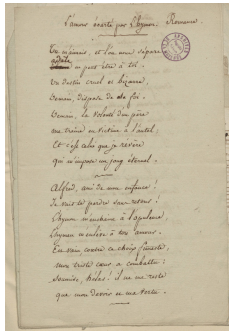 L'amour écarté par l'hymen Romance.
On m'unit, et l'on me sépare
Adèle ne peut être à toi.
Un destin cruel et bizarre,
Demain, dispose de sa foi.
Demain, la volonté d'un père
me traîne en victime à l'autel;
Et c'est celui que je révère
qui m'impose un joug éternel.
Alfred, ami de mon enfance!
Je vais te perdre sans retour!
L'hymen m'enchaîne à l'opulence
L'hymen m'enlève à ton amour.
En vain, contre ce choix funeste,
mon triste cœur a combattu:
Soumise, hélas! il ne me reste
que mon devoir et ma vertu.